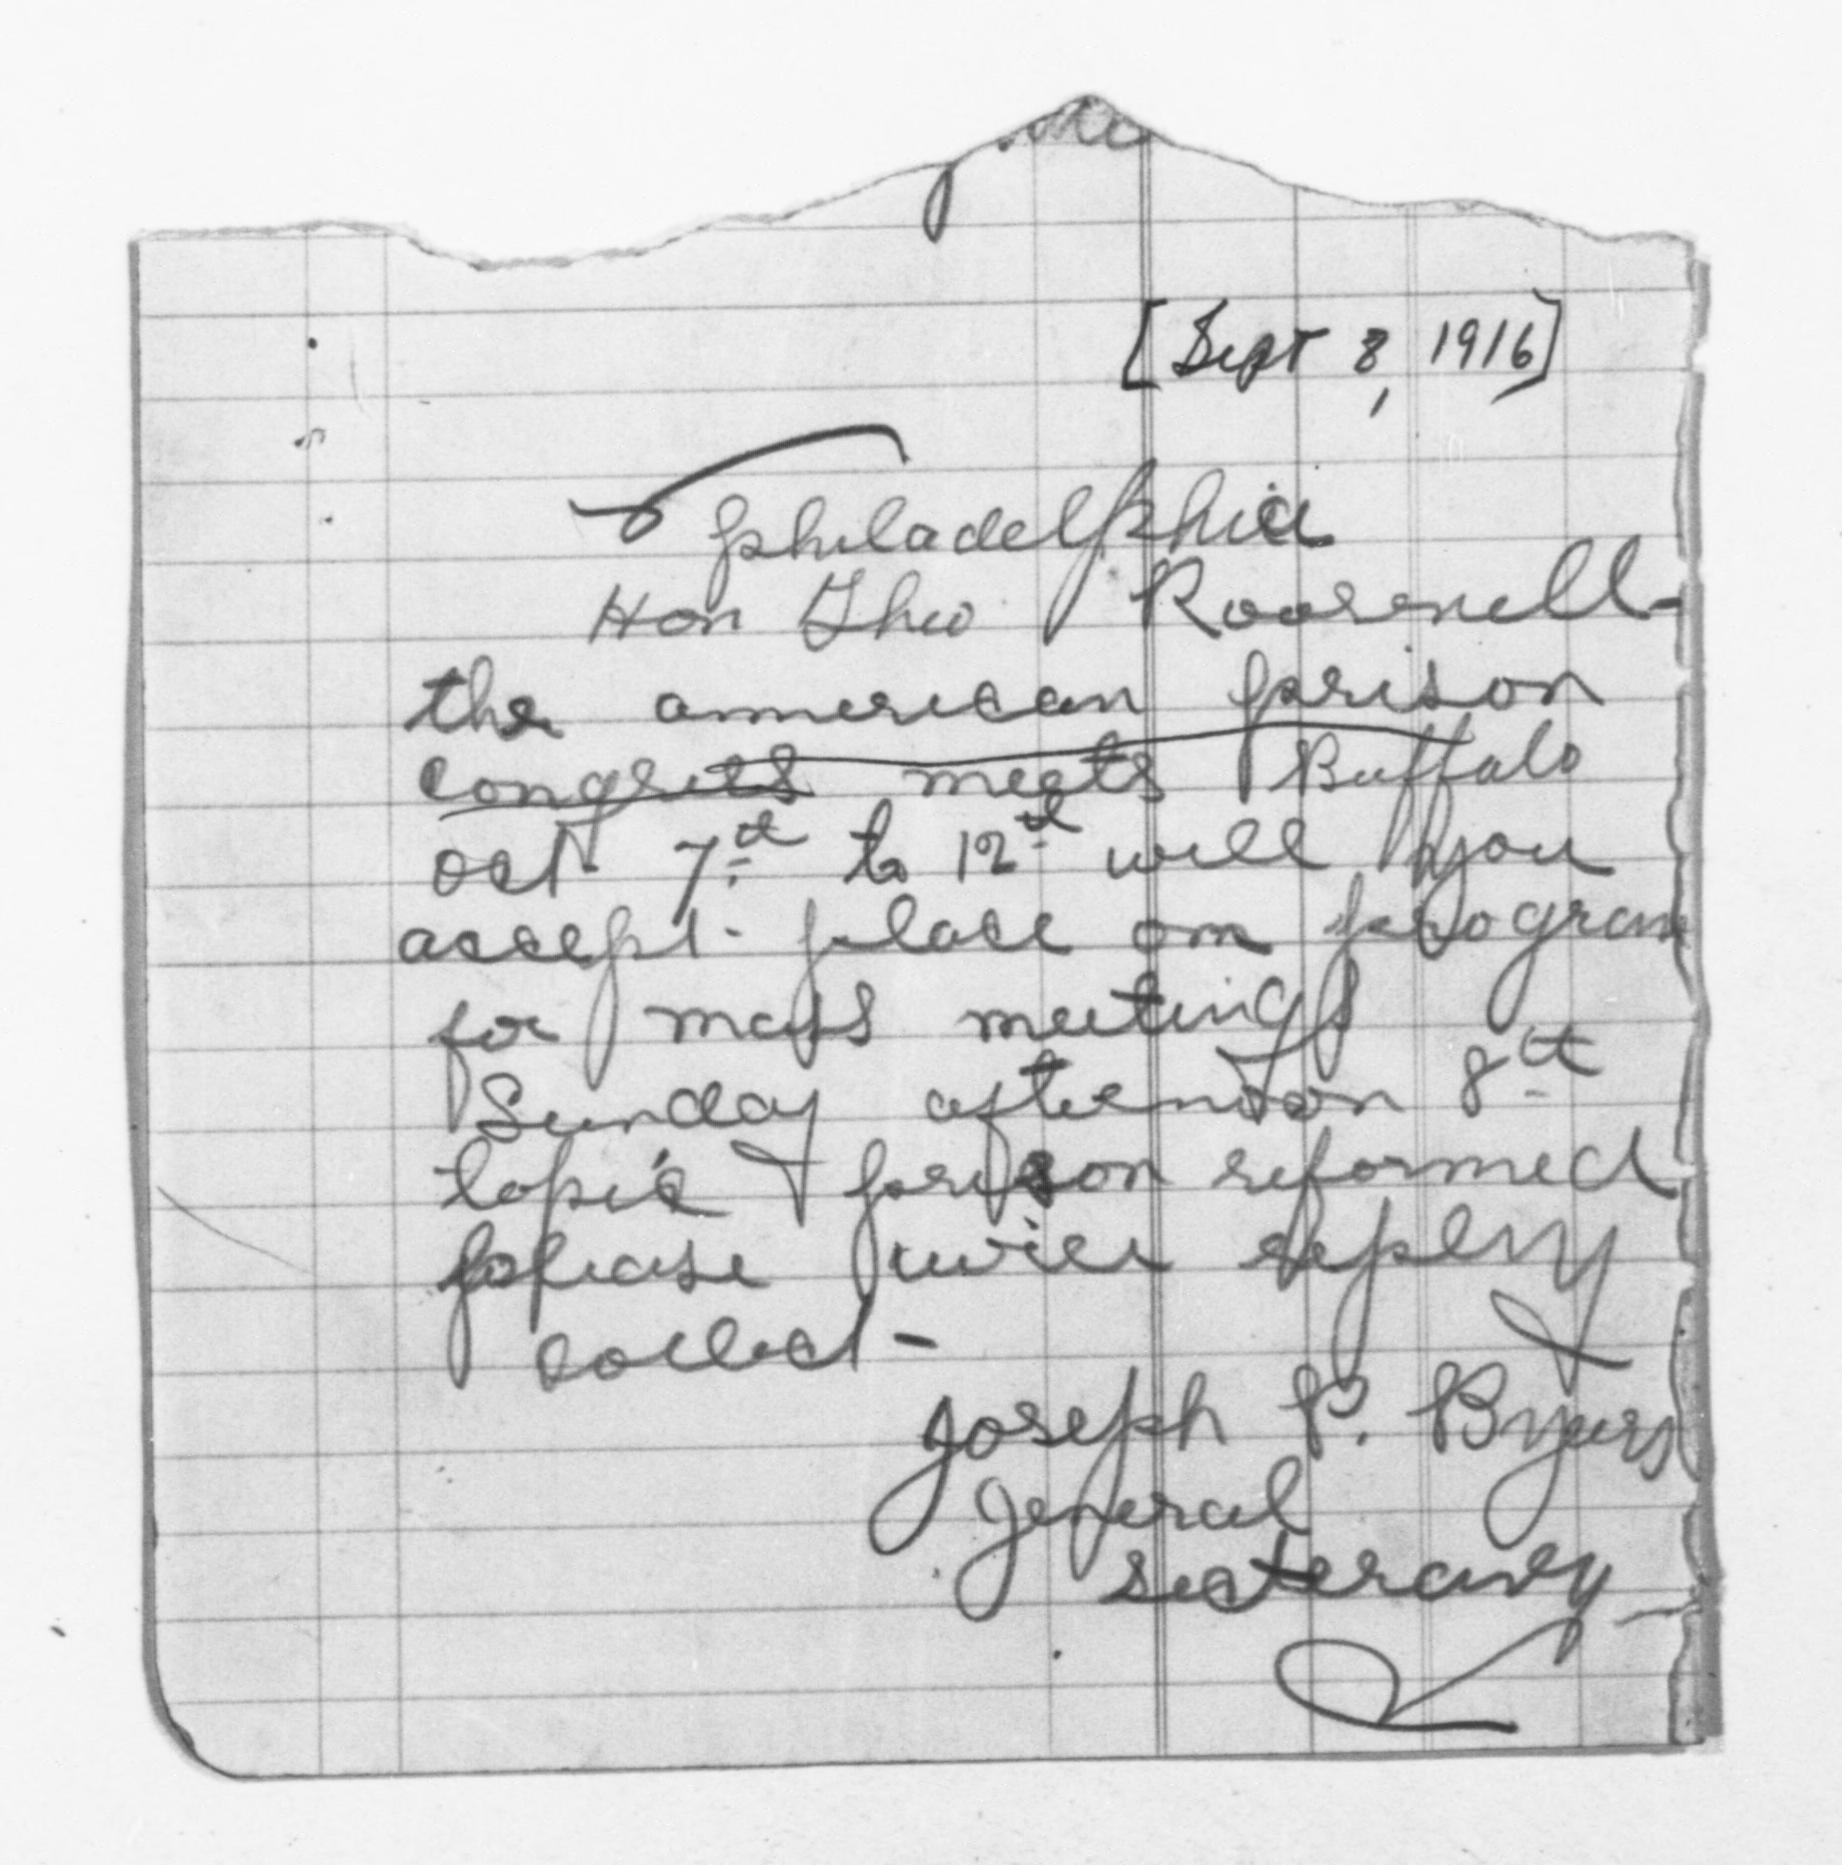 [Sept 8, 1916]
Philadelphia
Hon Theo Roosevelt
the american prison
congress meets Buffalo
oct 7th to 12th will you
accept place on program
for mass meetings
Sunday afternoon 8th
topic prison reformed
please wire reply
collect -
Joseph P. Byers
General
secterary